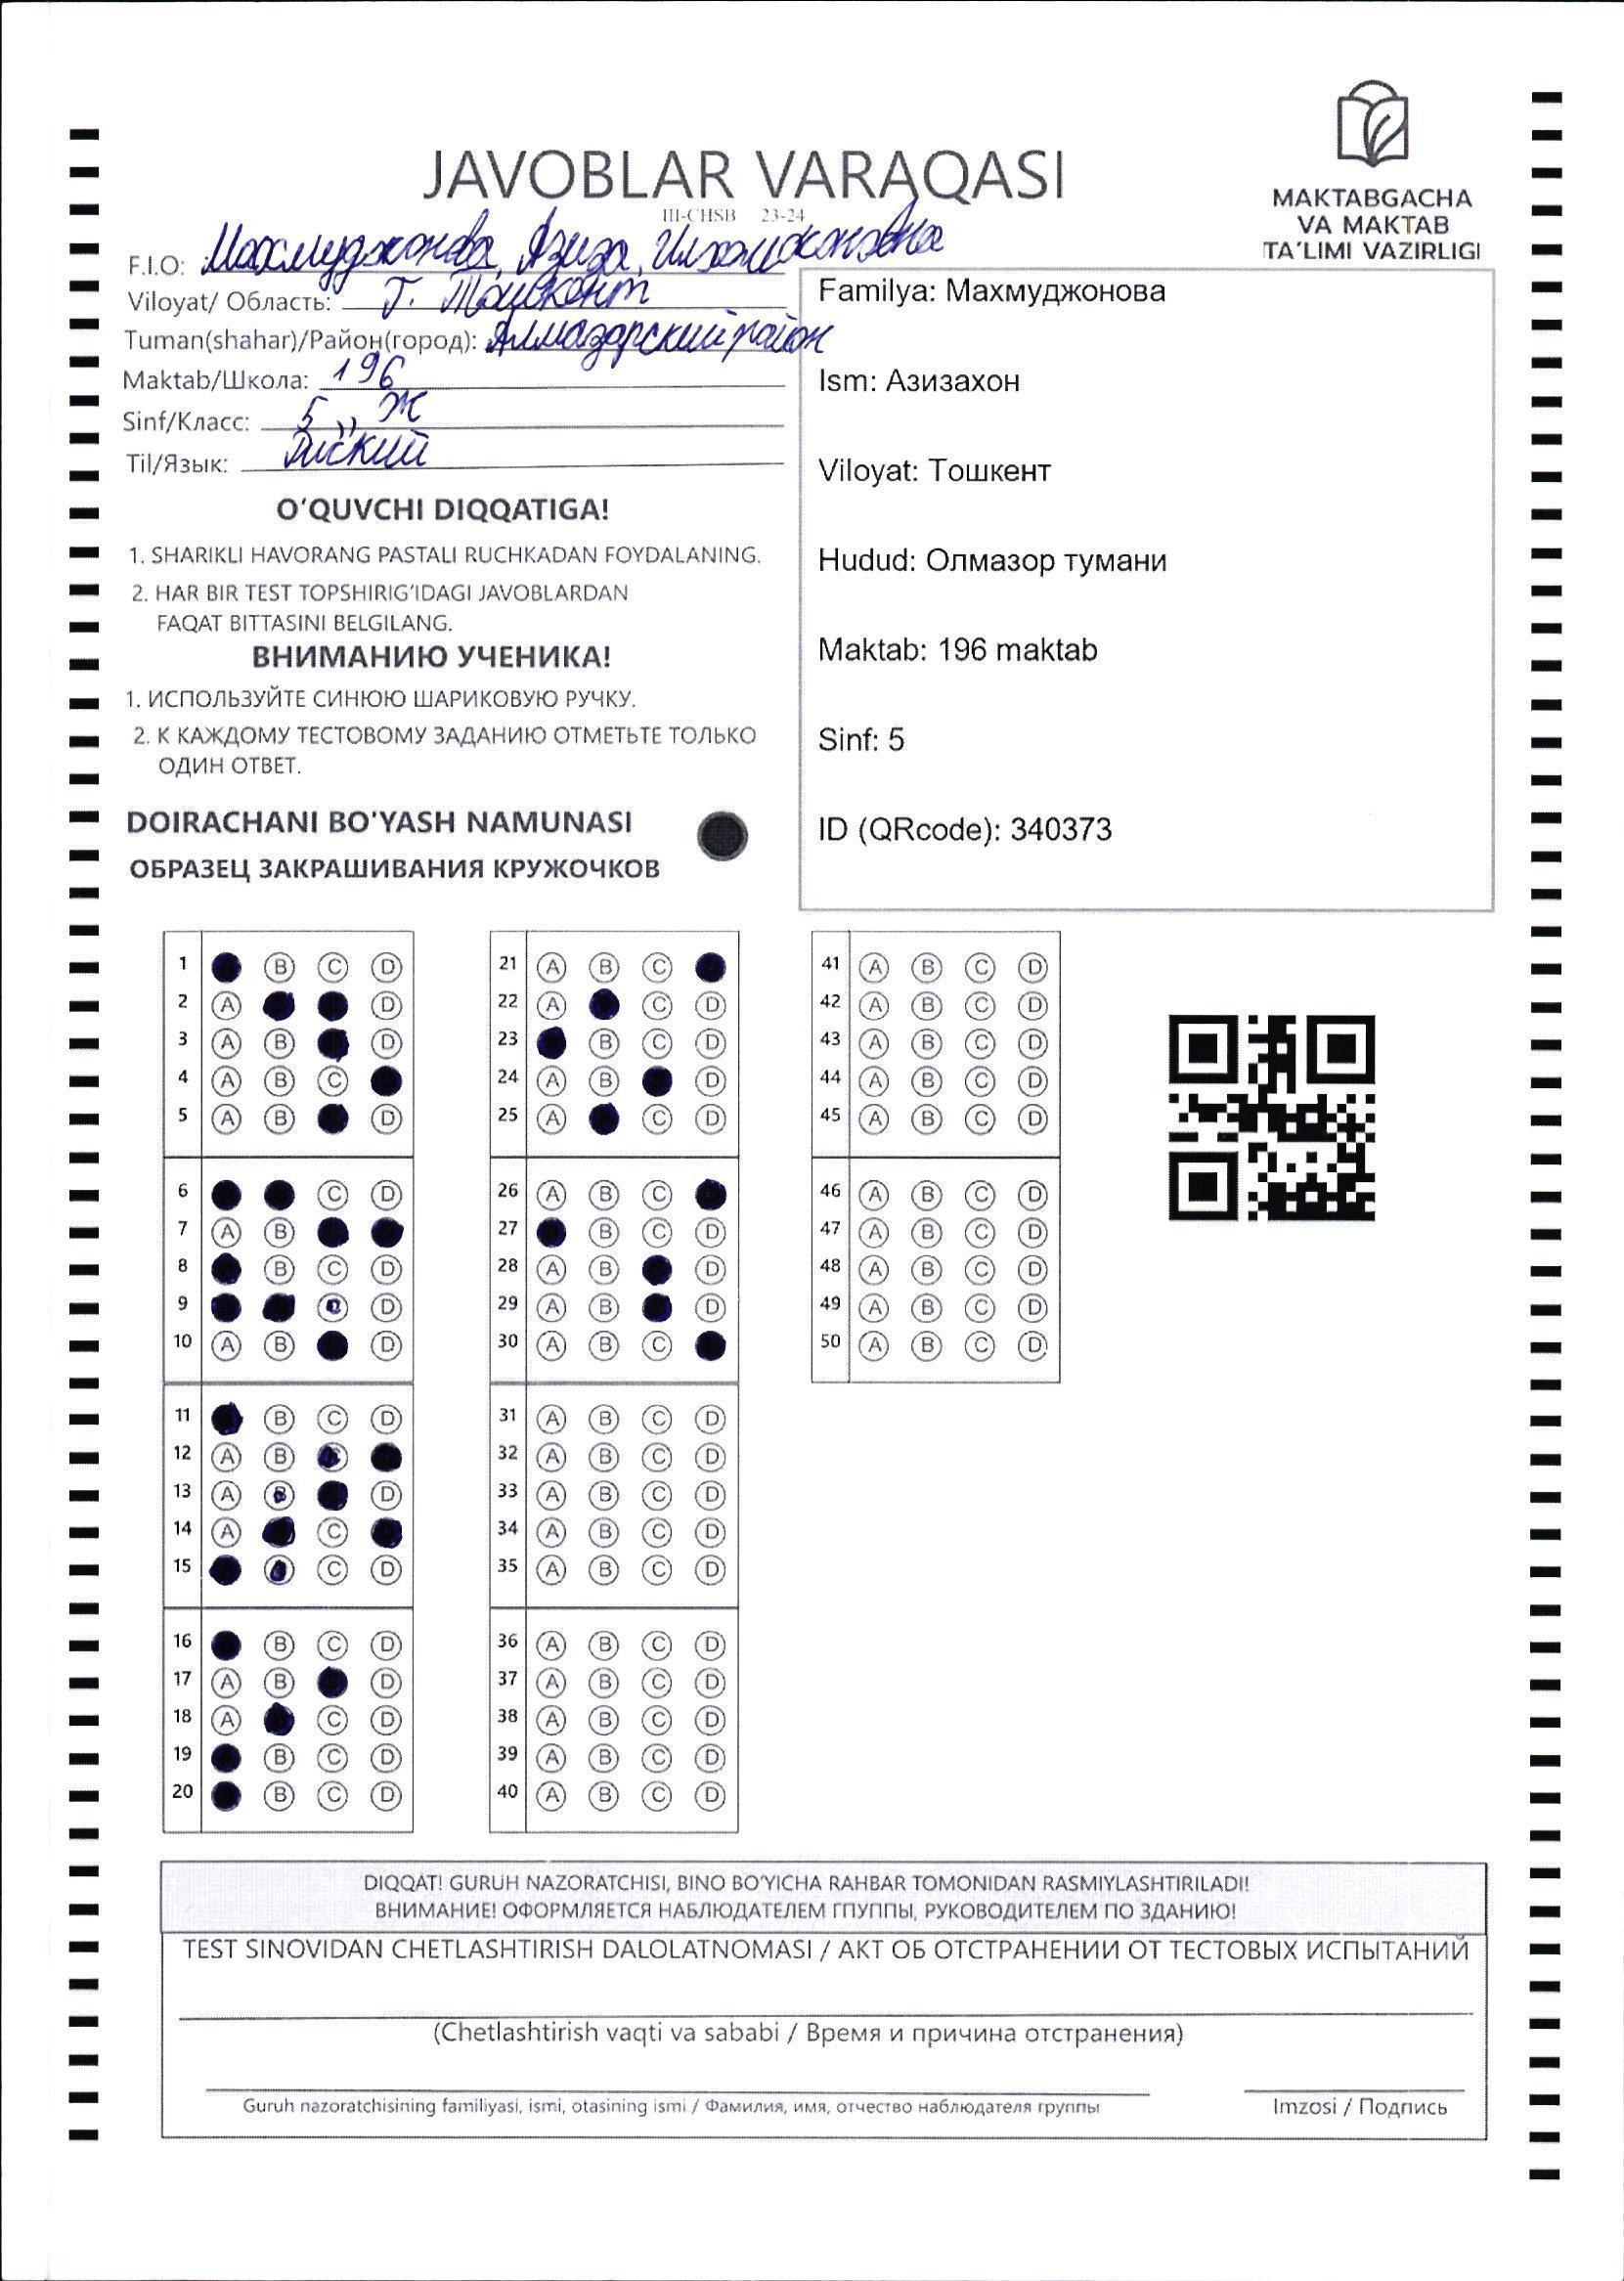 JAVOBLAR VARAQASI
III-CHSB 23-24
MAKTABGACHA
VA MAKTAB
TA'LIMI VAZIRLIGI
F.I.O: Махмуджонова Азиза
Viloyat/ Область: г. Ташкент
Tuman(shahar)/Район(город): Алмазарский район
Maktab/Школа: 196
Sinf/Класс: 5 „Ж
Til/Язык:
O'QUVCHI DIQQATIGA!
1. SHARIKLI HAVORANG PASTALI RUCHKADAN FOYDALANING.
2. HAR BIR TEST TOPSHIRIG'IDAGI JAVOBLARDAN
FAQAT BITTASINI BELGILANG.
ВНИМАНИЮ УЧЕНИКА!
1. ИСПОЛЬЗУЙТЕ СИНЮЮ ШАРИКОВУЮ РУЧКУ.
2. К КАЖДОМУ ТЕСТОВОМУ ЗАДАНИЮ ОТМЕТЬТЕ ТОЛЬКО
ОДИН ОТВЕТ.
DOIRACHANI BO'YASH NAMUNASI
ОБРАЗЕЦ ЗАКРАШИВАНИЯ КРУЖОЧКОВ
Familya: Махмуджонова
Ism: Азизахон
Viloyat: Тошкент
Hudud: Олмазор тумани
Maktab: 196 maktab
Sinf: 5
ID (QRcode): 340373
1 B C D
2 A D
3 A B D
4 A B C
5 A B D
6 C D
7 A B
8 B C D
9 D
10 A B D
11 B C D
12 A B
13 A B D
14 A C
15 C D
16 B C D
17 A B D
18 A C D
19 B C D
20 B C D
21 A B C
22 A C D
23 B C D
24 A B D
25 A C D
26 A B C
27 B C D
28 A B D
29 A B D
30 A B C
31 A B C D
32 A B C D
33 A B C D
34 A B C D
35 A B C D
36 A B C D
37 A B C D
38 A B C D
39 A B C D
40 A B C D
41 A B C D
42 A B C D
43 A B C D
44 A B C D
45 A B C D
46 A B C D
47 A B C D
48 A B C D
49 A B C D
50 A B C D
DIQQAT! GURUH NAZORATCHISI, BINO BO'YICHA RAHBAR TOMONIDAN RASMIYLASHTIRILADI!
ВНИМАНИЕ! ОФОРМЛЯЕТСЯ НАБЛЮДАТЕЛЕМ ГПУППЫ, РУКОВОДИТЕЛЕМ ПО ЗДАНИЮ!
TEST SINOVIDAN CHETLASHTIRISH DALOLATNOMASI / АКТ ОБ ОТСТРАНЕНИИ ОТ ТЕСТОВЫХ ИСПЫТАНИЙ
(Chetlashtirish vaqti va sababi / Время и причина отстранения)
Guruh nazoratchisining familiyasi, ismi, otasining ismi / Фамилия, имя, отчество наблюдателя группы
Imzosi / Подпись